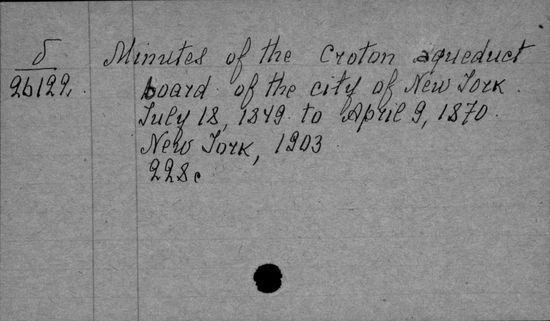 δ
26129.
Minutes of the Croton aqueduct
board of the city of New York.
July 18, 1849 to April 9, 1870.
New York, 1903
228c